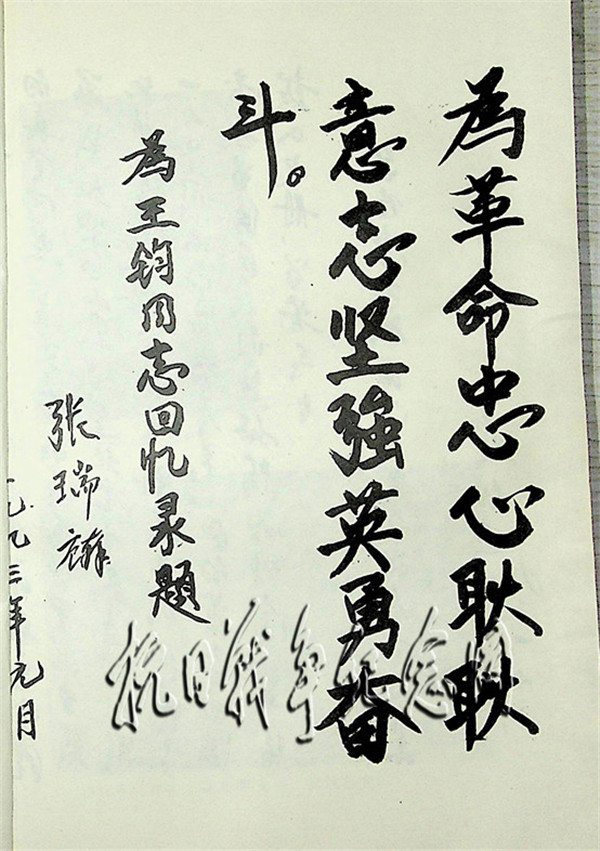 為革命忠心耿耿
意志坚強英勇奋
斗。
為王钧同志回忆录题
张瑞麟
一九九三年元月
抗日战争纪念网